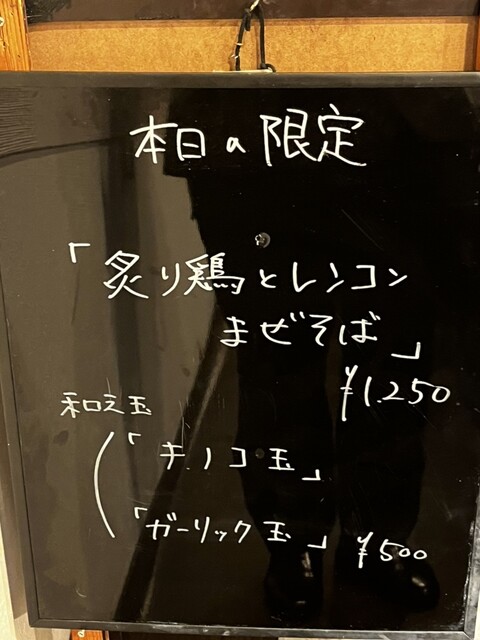 本日の限定
「炙り鶏とレンコン
まぜそば」
¥1,250
和え玉
「キノコ玉」
「ガーリック玉」 ¥500